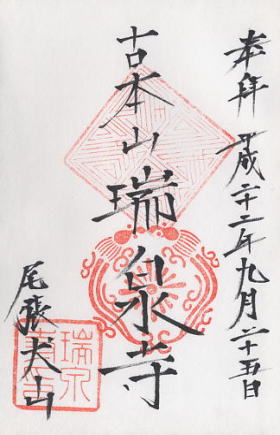 奉拝 平成二十二年九月二十五日
古本山瑞泉寺
尾張犬山
瑞泉